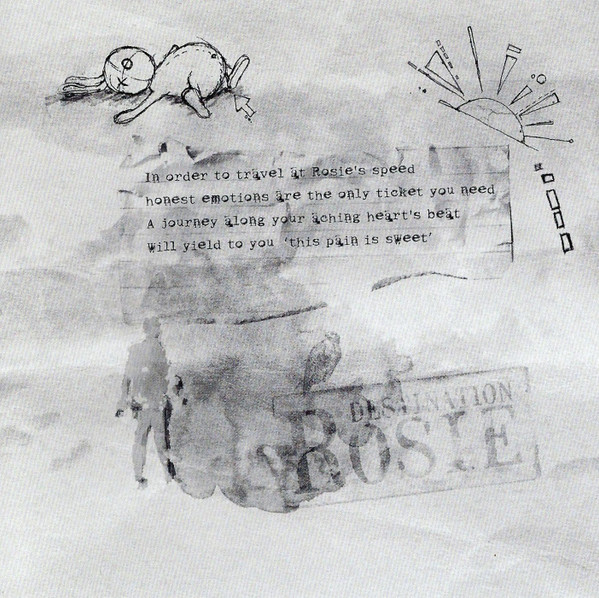 In order to travel at Rosie's speed
honest emotions are the only ticket you need
A journey along your aching heart's beat
Will yield to you 'this pain is sweet'
DESTINATION
ROSIE